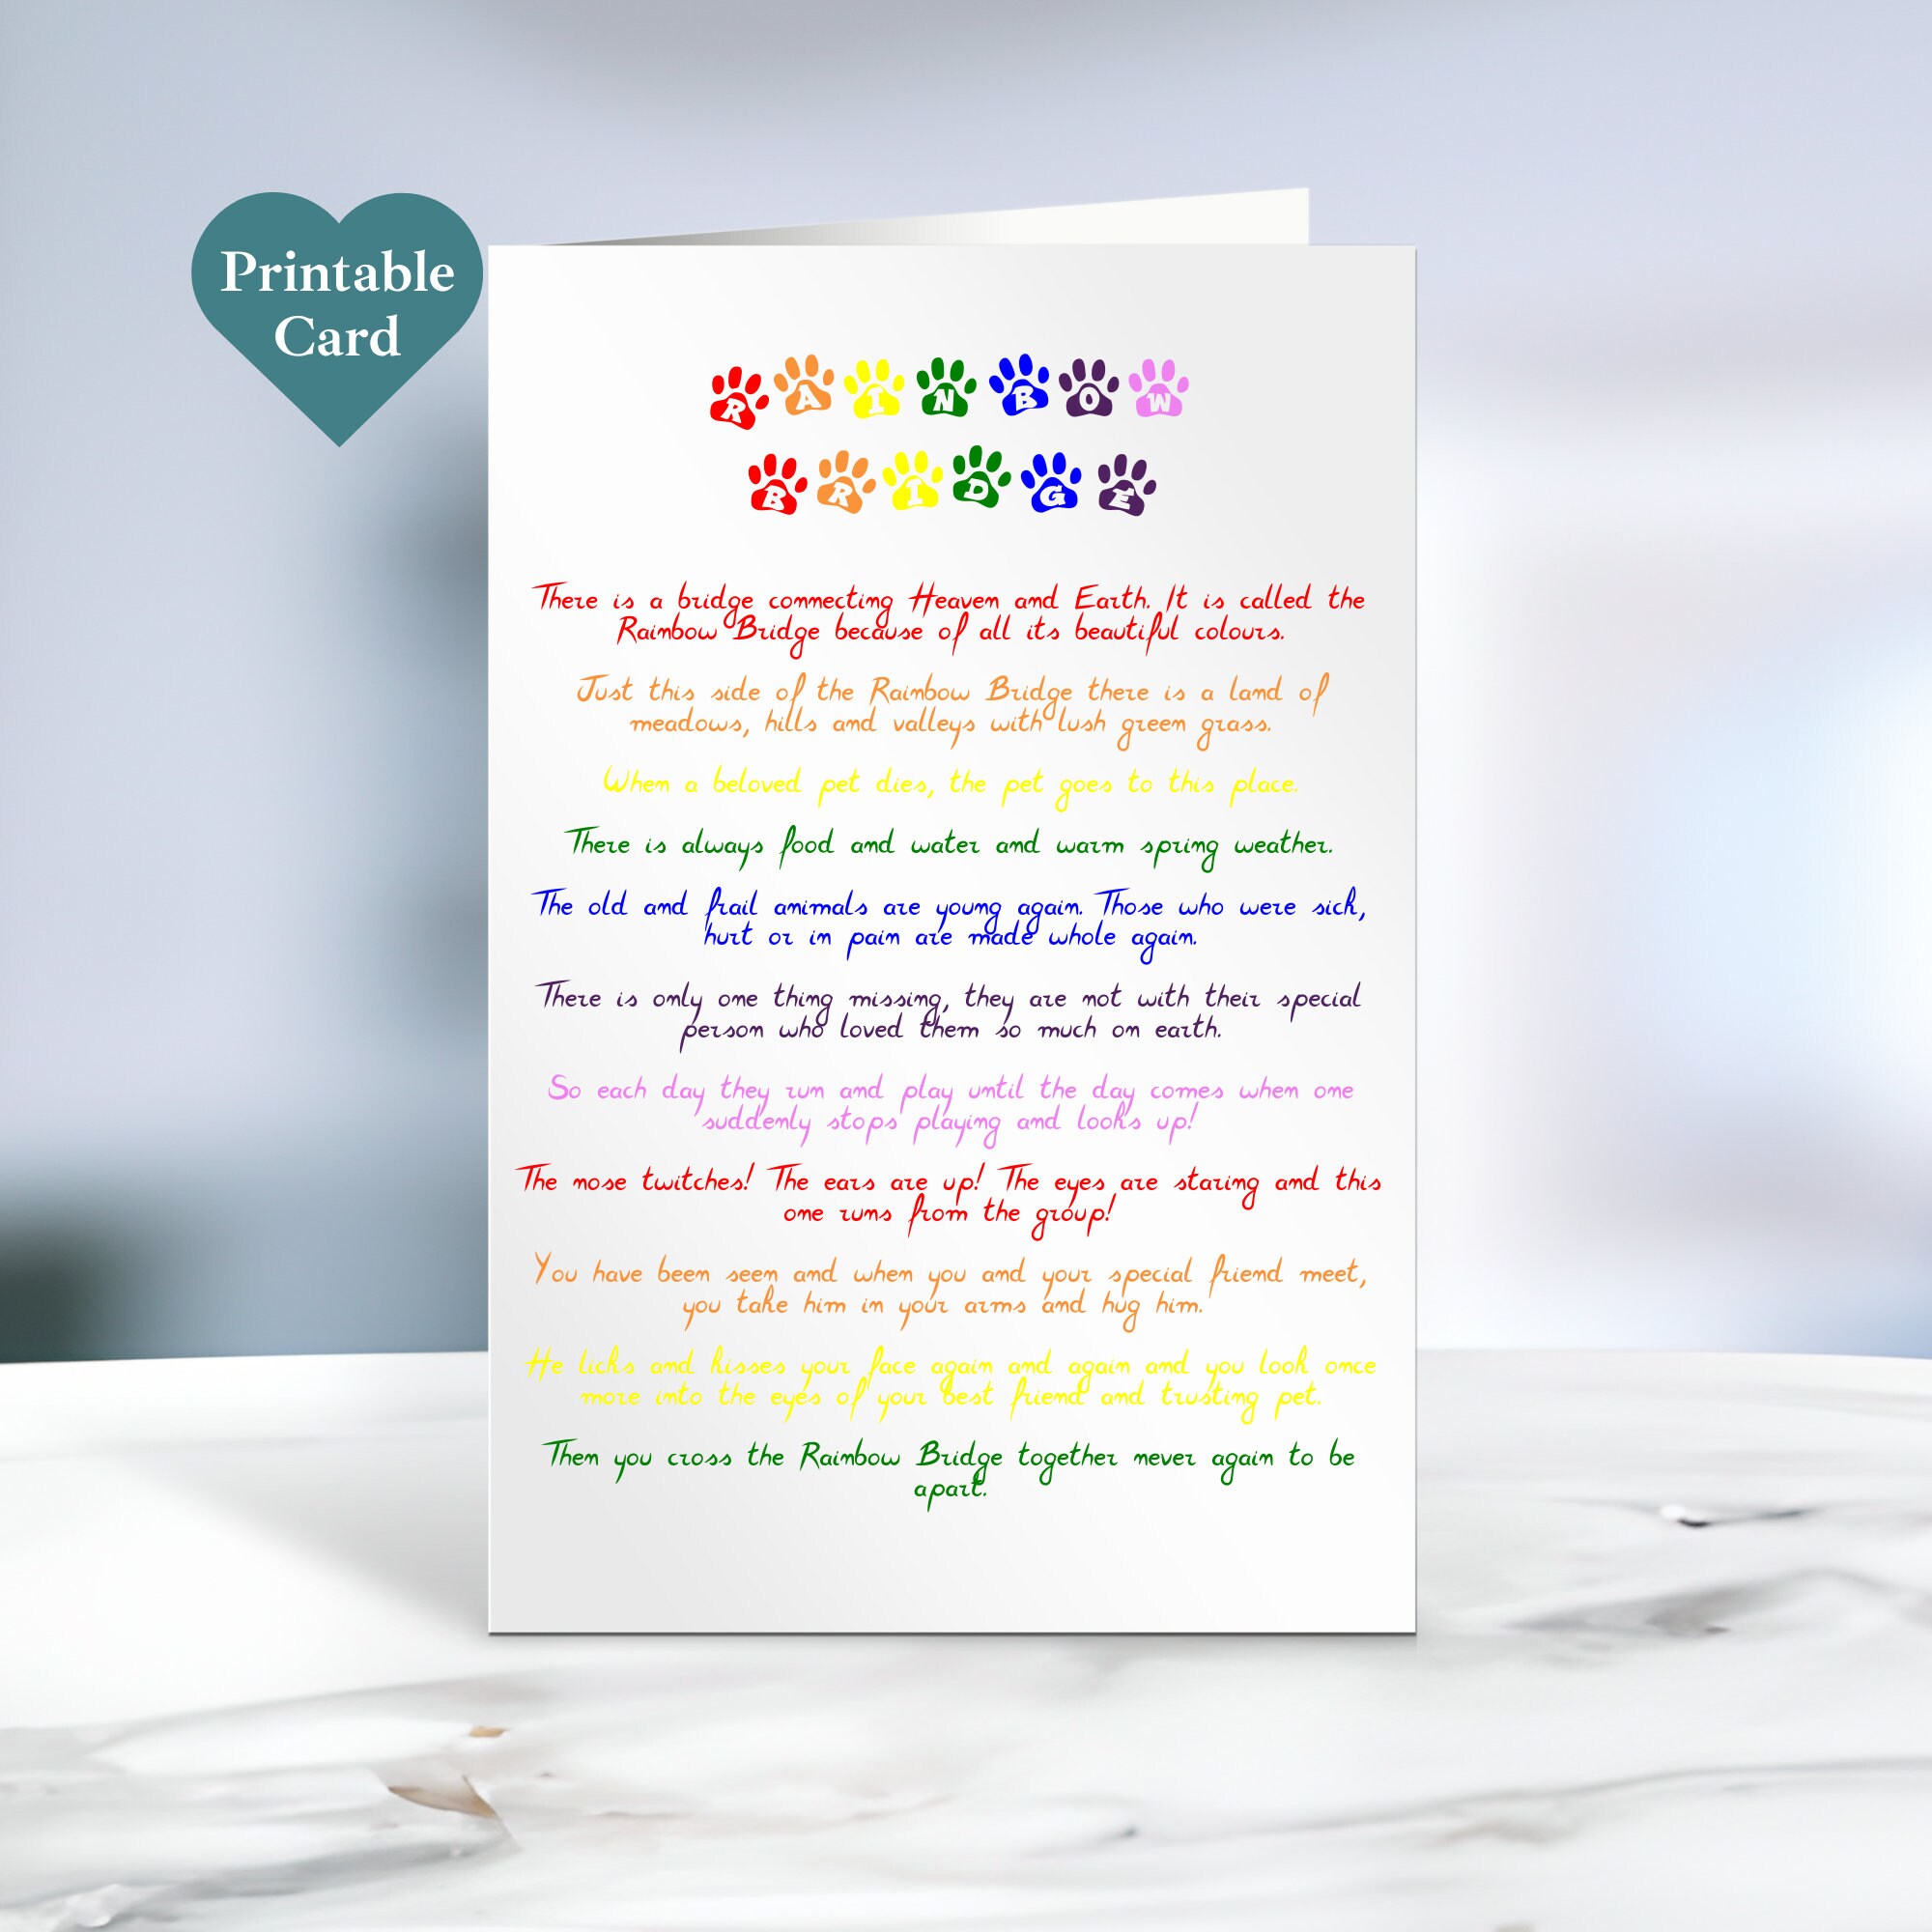 Printable
Card
RAINBOW
BRIDGE
There is a bridge connecting Heaven and Earth. It is called the
Rainbow Bridge because of all its beautiful colours.
Just this side of the Rainbow Bridge there is a land of
meadows, hills and valleys with lush green grass.
When a beloved pet dies, the pet goes to this place.
There is always food and water and warm spring weather.
The old and frail animals are young again. Those who were sick,
hurt or in pain are made whole again.
There is only one thing missing, they are not with their special
person who loved them so much on earth.
So each day they run and play until the day comes when one
suddenly stops playing and looks up!
The nose twitches! The ears are up! The eyes are staring and this
one runs from the group!
You have been seen and when you and your special friend meet,
you take him in your arms and hug him.
He licks and kisses your face again and again and you look once
more into the eyes of your best friend and trusting pet.
Then you cross the Rainbow Bridge together never again to be
apart.